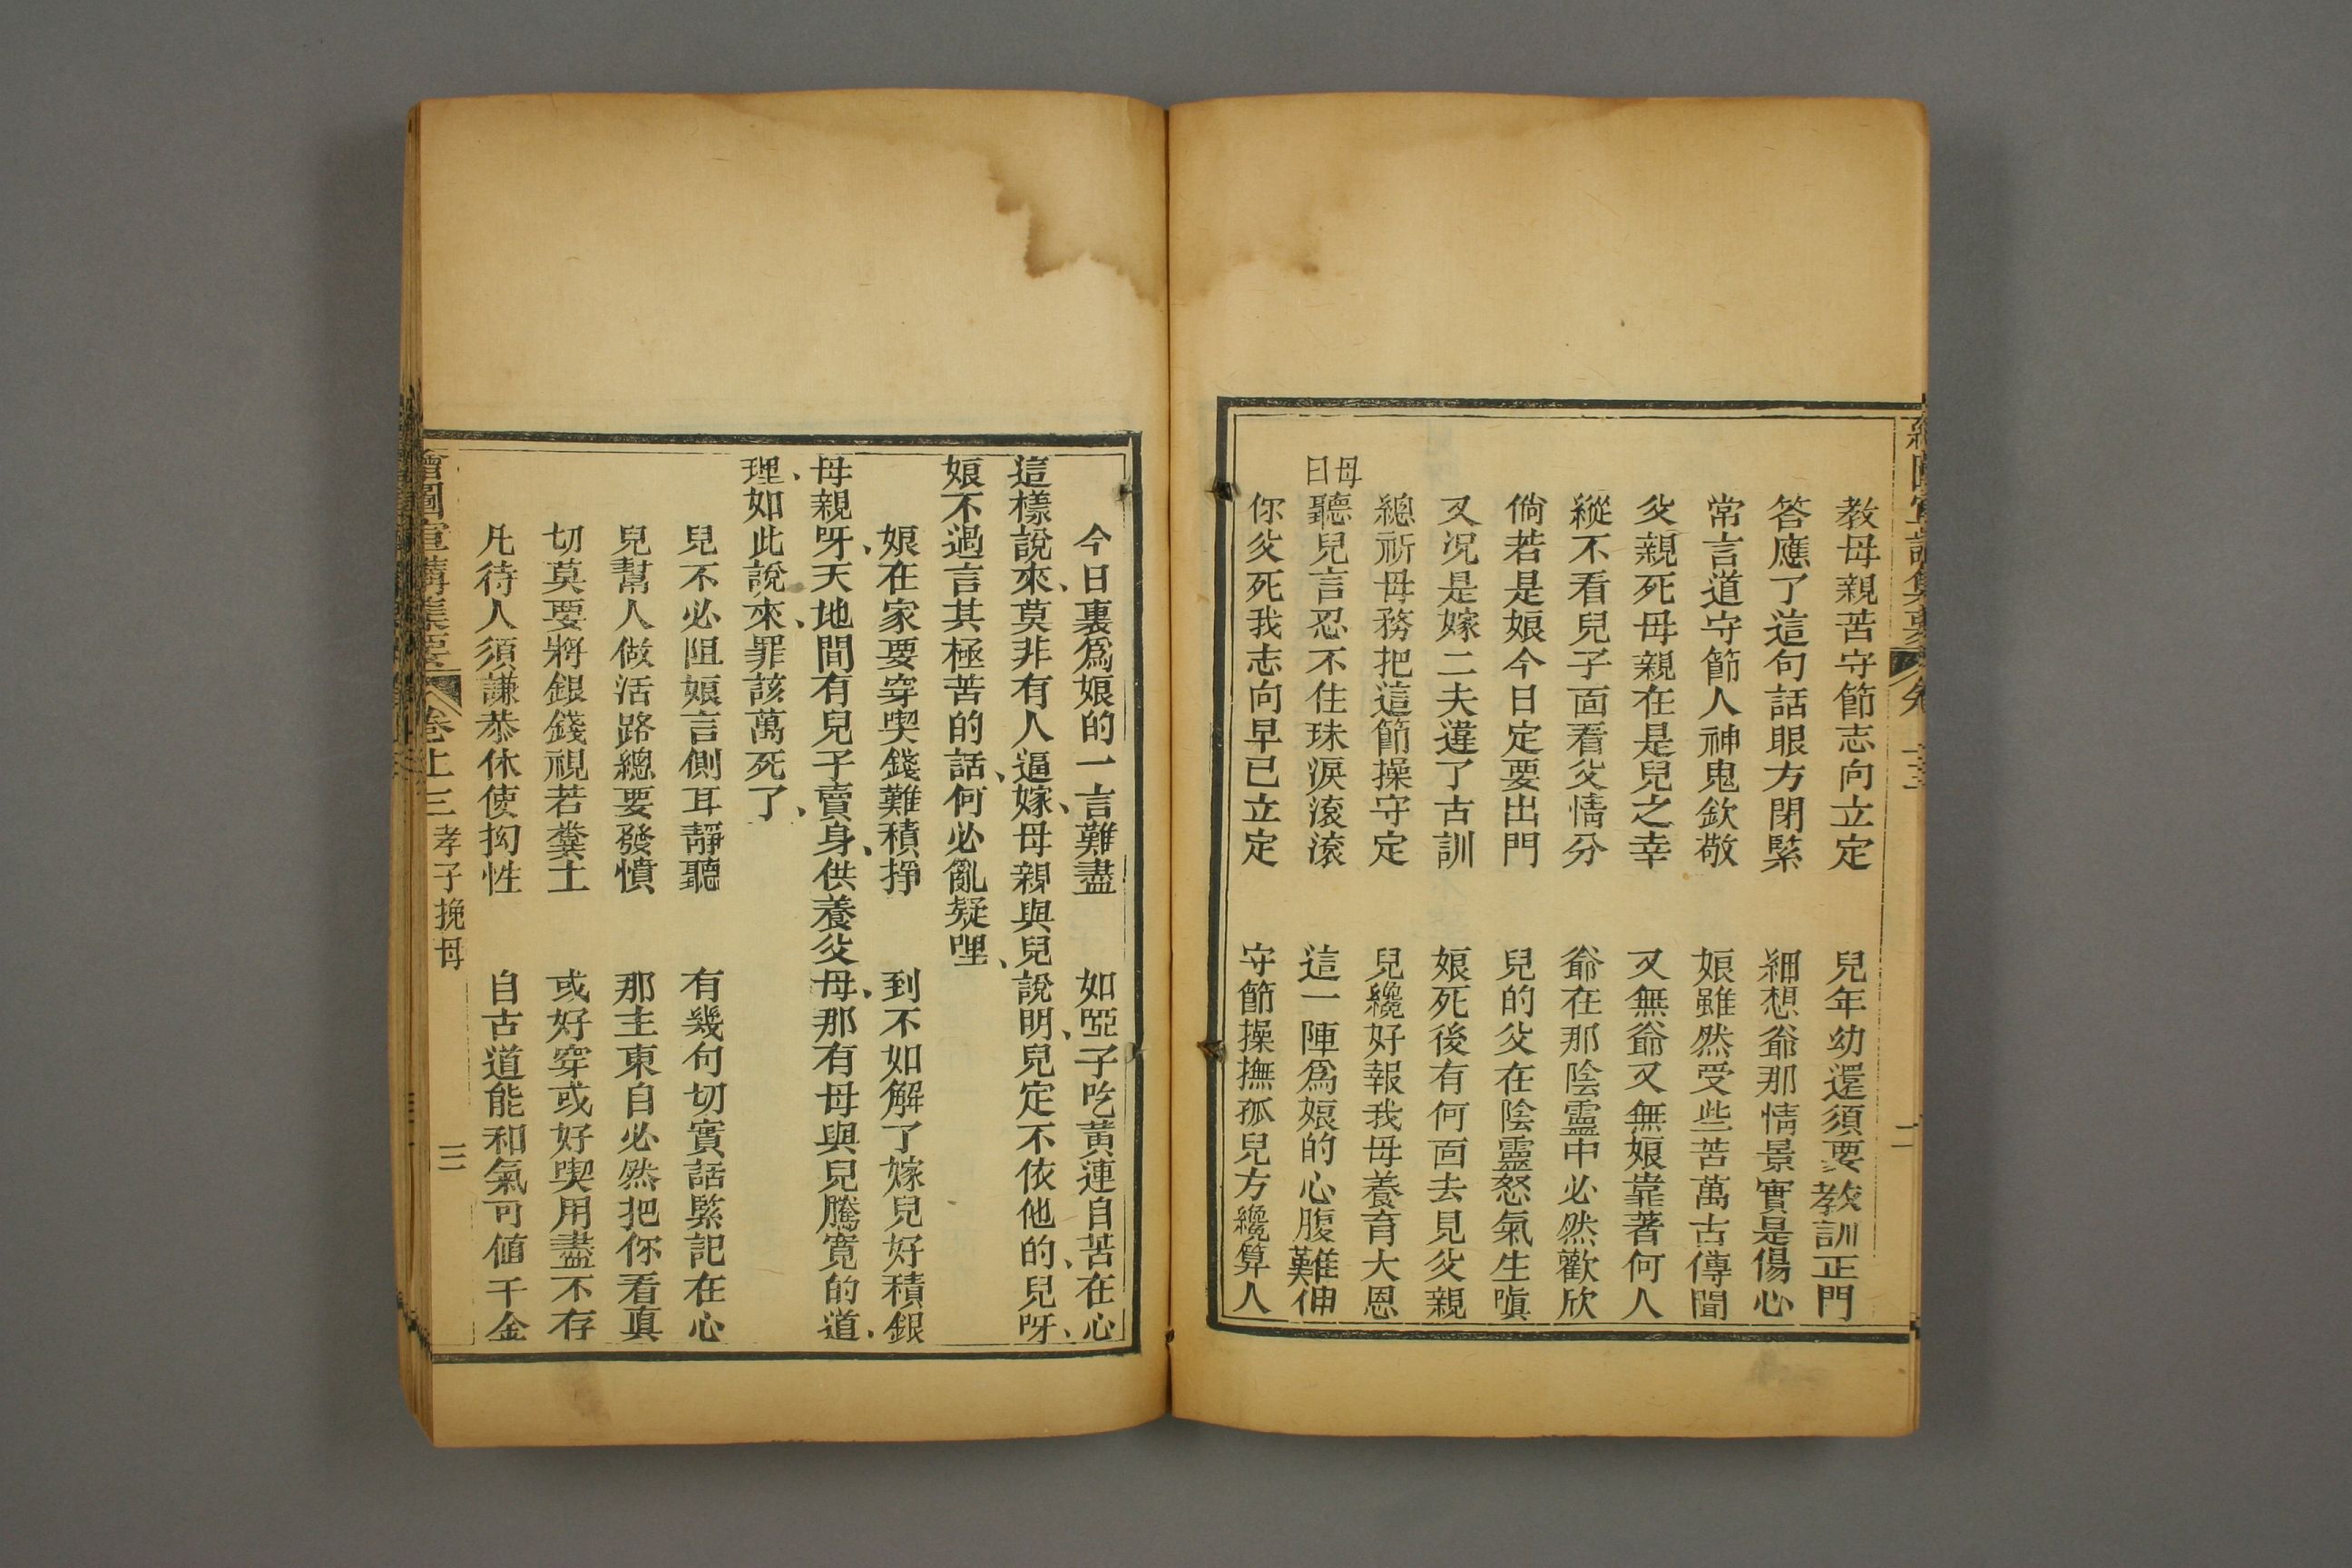 教母親苦守節志向立定　兒年幼還須要教訓正門
答應了這句話眼方閉緊　細想爺那情景實是傷心
常言道守節人神鬼欽敬　娘雖然受些苦萬古傳聞
父親死母親在是兒之幸　又無爺又無娘靠著何人
縱不看兒子面看父情分　爺在那陰靈中必然歡欣
倘若是娘今日定要出門　兒的父在陰靈怒氣生嗔
又況是嫁二夫違了古訓　娘死後有何面去見父親
總祈母務把這節操守定　兒纔好報我母養育大恩
母曰聽兒言忍不住珠淚滾滾　這一陣為娘的心腹難伸
你父死我志向早已立定　守節操撫孤兒方纔算人
二
今日裏為娘的一言難盡　如啞子吃黃連自苦在心
這樣說來、莫非有人逼嫁、母親與兒說明、兒定不依他的、兒呀、
娘不過言其極苦的話、何必亂疑哩、
娘在家要穿喫錢難積掙　到不如解了嫁兒好積銀
母親呀、天地間有兒子賣身、供養父母、那有母與兒騰寬的道、
理、如此說來、罪該萬死了、
兒不必阻娘言側耳靜聽　有幾句切實話緊記在心
兒幫人做活路總要發憤　那主東自必然把你看真
切莫要將銀錢視若糞土　或好穿或好喫用盡不存
凡待人須謙恭休使拗性　自古道能和氣可值千金
繪圖宣講集要　卷上三　孝子挽母　三